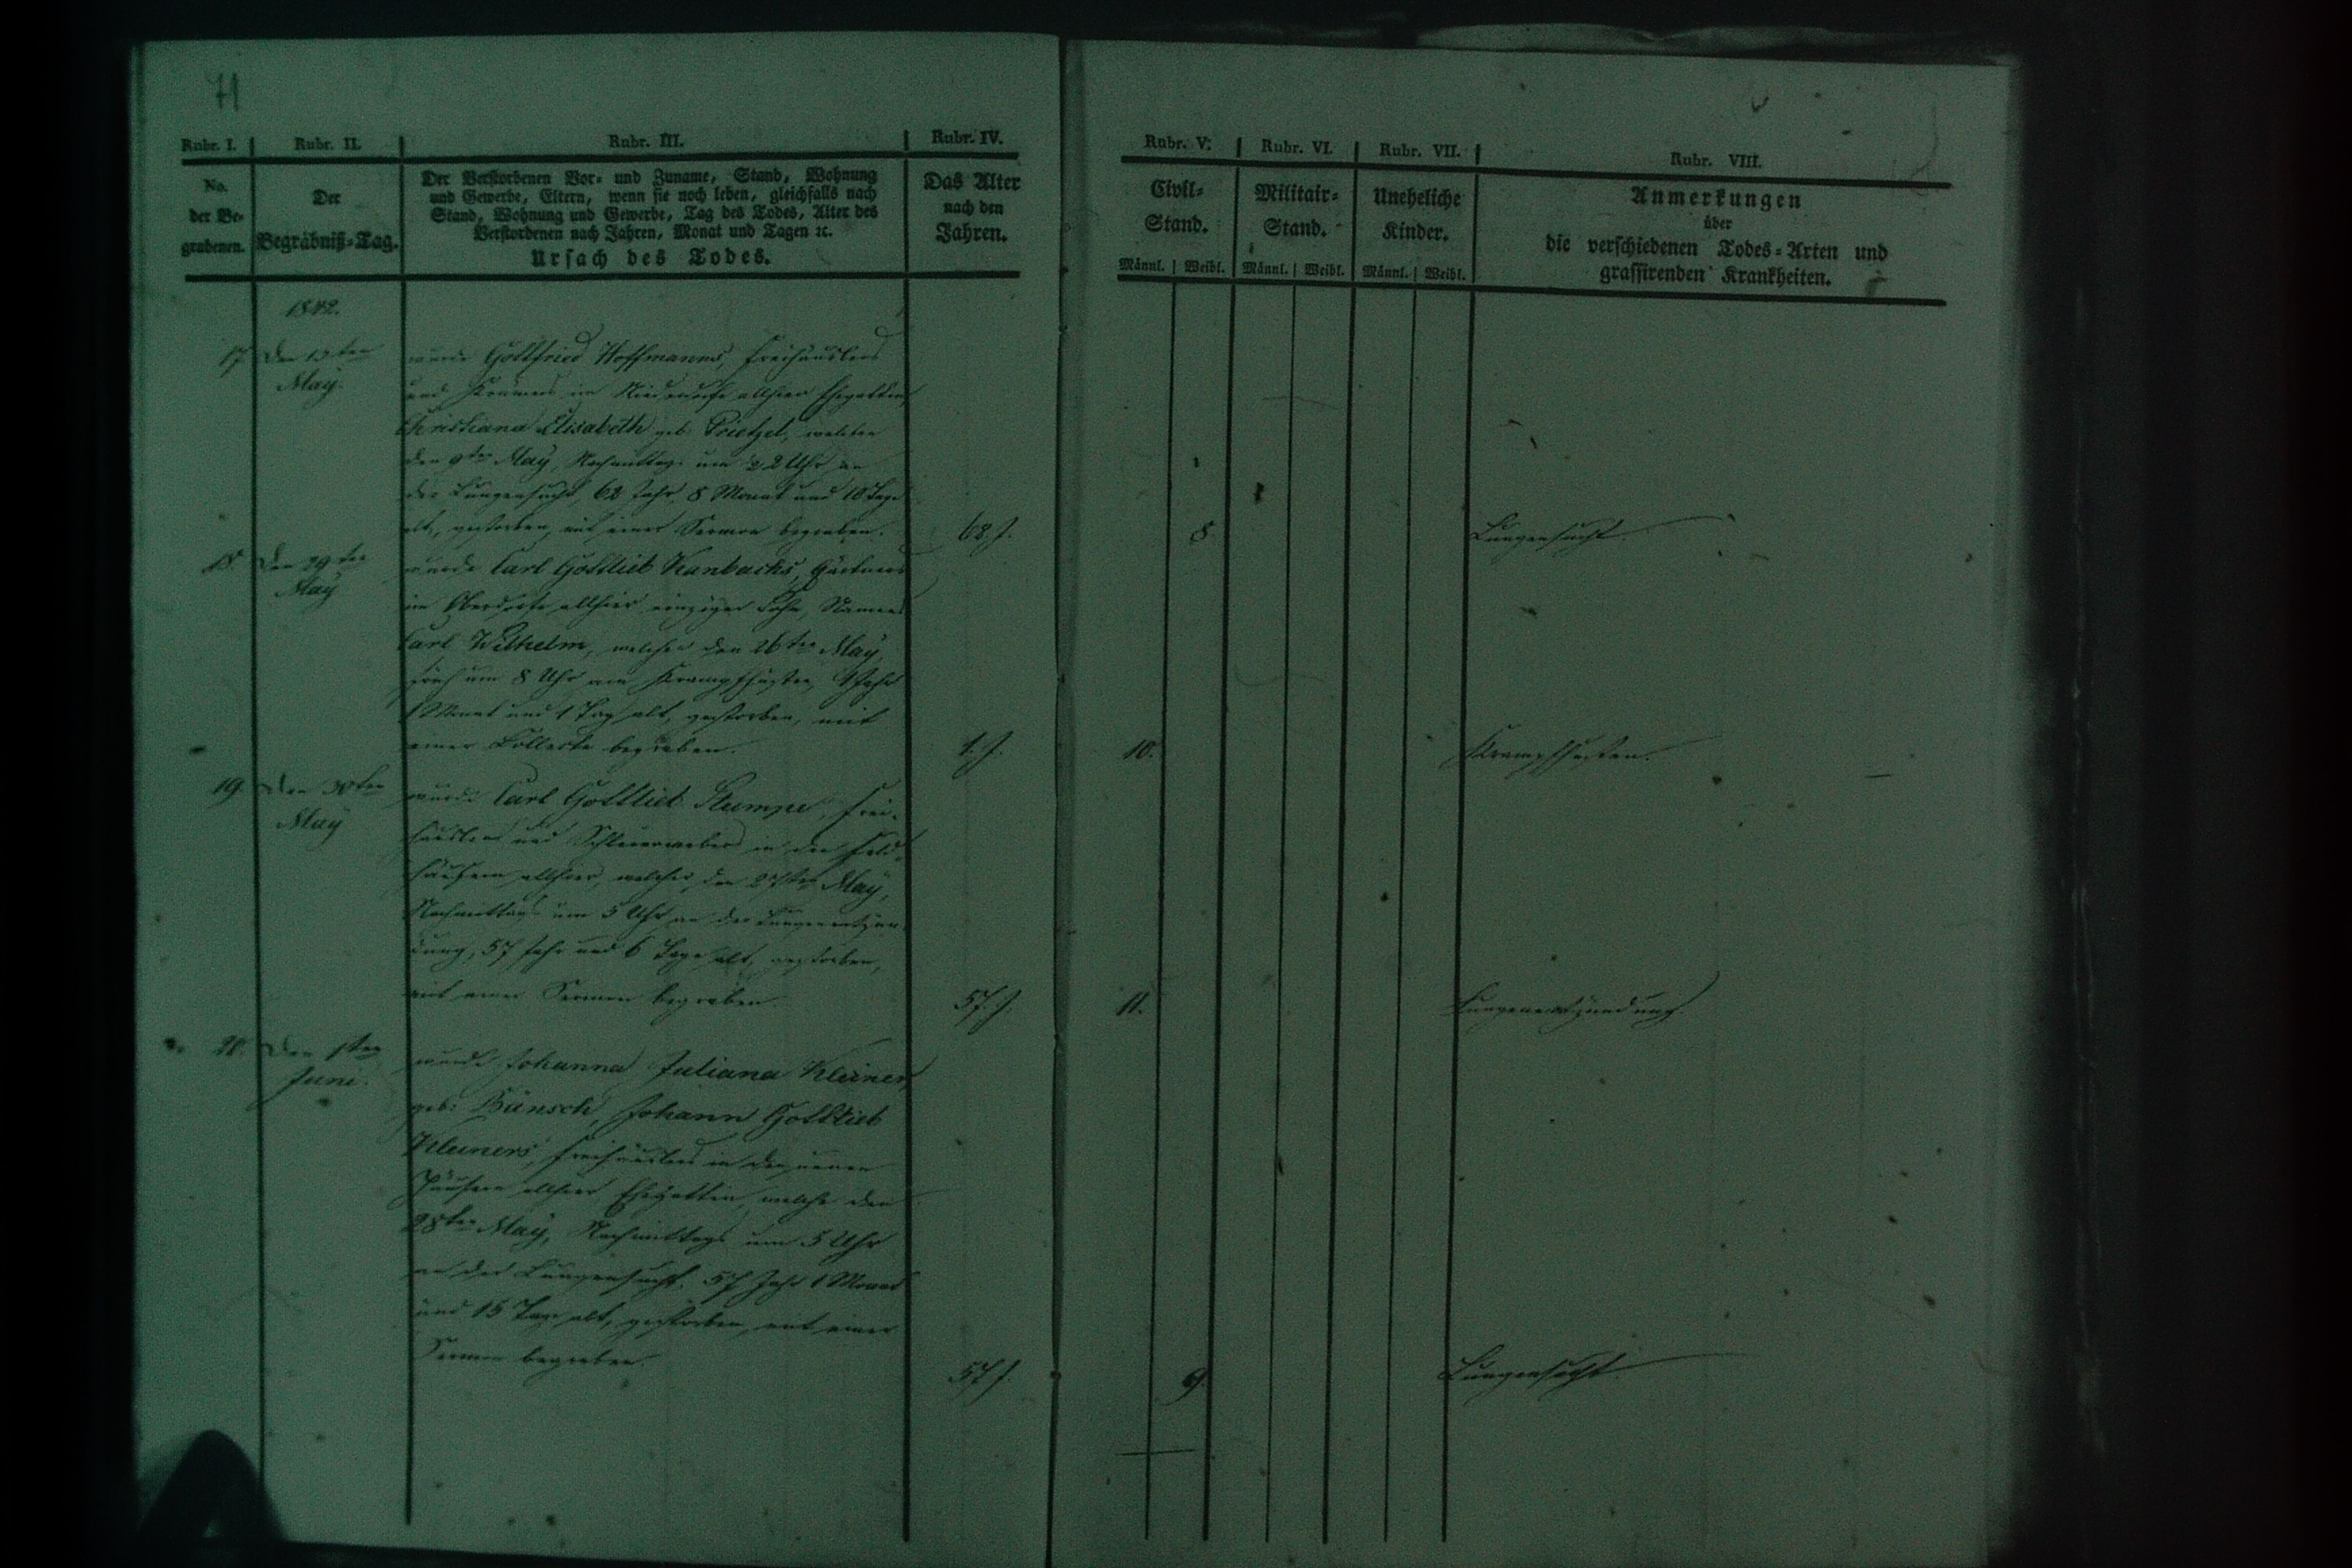 71
Rubr. I. Rubr. II. Rubr. III. Rubr. IV. Rubr. V. Rubr. VI. Rubr. VII. Rubr. VIII.
No.
der Be-
grabenen.
Der
Begräbniß-Tag.
Der Verstorbenen Vor- und Zuname, Stand, Wohnung
und Gewerbe, Eltern, wenn sie noch leben, gleichfalls nach
Stand, Wohnung und Gewerbe, Tag des Todes, Alter des
Verstorbenen nach Jahren, Monat und Tagen ꝛc.
Ursach des Todes.
Das Alter
nach den
Jahren.
Civil-
Stand.
Männl. Weibl.
Militair-
Stand.
Männl. Weibl.
Uneheliche
Kinder.
Männl. Weibl.
Anmerkungen
über
die verschiedenen Todes-Arten und
grassirenden Krankheiten.
1842.
17. Den
May.
wurde Gottfried Hoffmanns, Freihäuslers
und Krämers im Niederdorfe allhier Ehegattin,
Christiana Elisabeth geb. Prietzel, welche
den 9ten May, Nachmittags um 2 Uhr an
der Lungensucht, 62 Jahr, 8 Monat und 10 Tage
alt, gestorben, mit einer Sermon begraben.
62. J. 8. Lungensucht.
18. Den 29ten
May
wurde Carl Gottlieb Kanbachs, Gärtners
im Oberdorfe allhier einziger Sohn, Namens
Carl Wilhelm, welcher den 26ten May,
früh um 8 Uhr am Krampfhusten, 1 Jahr
1 Monat und 1 Tag alt, gestorben, mit
einer Collecte begraben.
1. J. 10. Krampfhusten.
19. Den 30ten
May
wurde Carl Gottlieb Stumpe, Frei-
häusler und Schleierweber in den Feld-
häusern allhier, welcher den 27ten May,
Nachmittags um 5 Uhr an der Lungenentzün-
dung, 57 Jahr und 6 Tage alt, gestorben,
mit einer Sermon begraben.
57. J. 11. Lungenentzündung.
20. Den 1ten
Juni.
wurde Johanna Juliana Kleiner,
geb. Bünsch, Johann Gottlieb
Kleiners, Freihäuslers in den neuen
Häusern allhier Ehegattin, welche den
28ten May, Nachmittags um 5 Uhr
an der Lungensucht, 57 Jahr 1 Monat
und 15 Tage alt, gestorben, mit einer
Sermon begraben.
57 J. 9. Lungensucht.